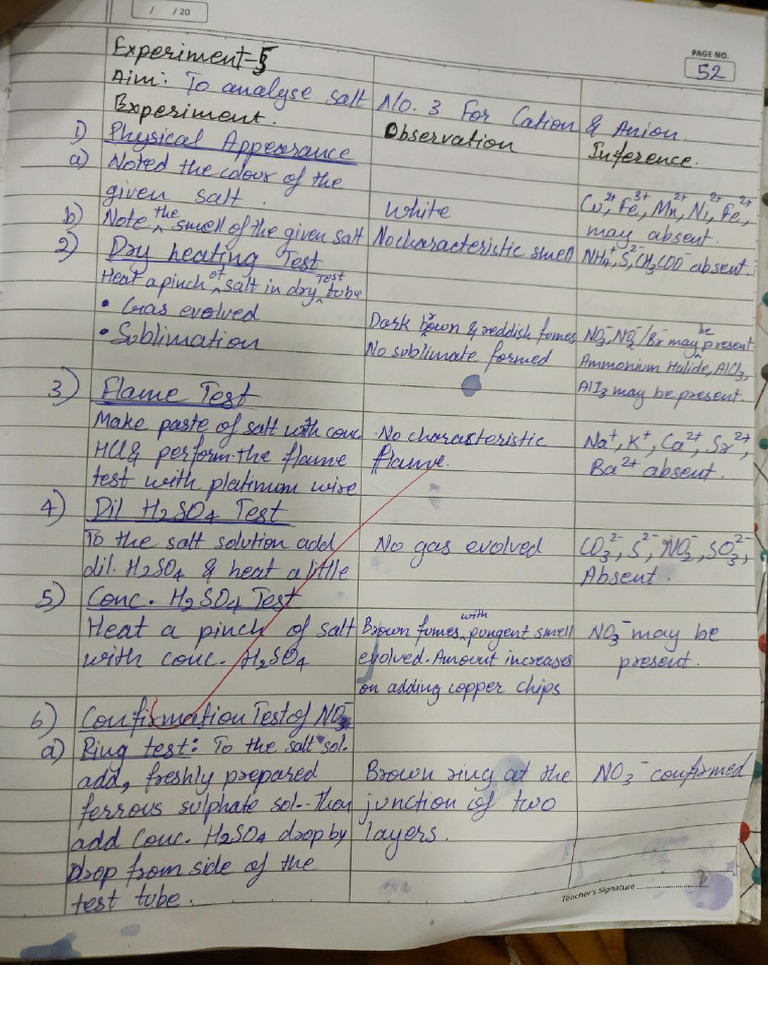 / /20
PAGE NO.
52
Experiment-5
Aim: To analyse salt No. 3 For Cation & Anion.
Experiment. Observation Inference.
1) Physical Appearance
a) Noted the colour of the
given salt. White Cu²⁺, Fe³⁺, Mn²⁺, Ni²⁺, Fe²⁺,
may absent.
b) Note the smell of the given salt No characteristic smell NH₄⁺, S²⁻, CH₃COO⁻ absent.
2) Dry heating Test
Heat a pinch of salt in dry Test tube
• Gas evolved Dark brown & reddish fumes NO₂⁻, NO₃⁻/Br⁻ may be present.
• Sublimation No sublimate formed Ammonium Halide, AlCl₃,
AlI₃ may be present.
3) Flame Test
Make paste of salt with conc. No characteristic Na⁺, K⁺, Ca²⁺, Sr²⁺,
HCl & perform the flame flame. Ba²⁺ absent.
test with platinum wire
4) Dil H₂SO₄ Test
To the salt solution add No gas evolved CO₃²⁻, S²⁻, NO₂⁻, SO₃²⁻,
dil. H₂SO₄ & heat a little Absent.
5) Conc. H₂SO₄ Test
Heat a pinch of salt Brown fomes with pungent smell NO₃⁻ may be
with conc. H₂SO₄ evolved. Amount increases present.
on adding copper chips
6) Confirmation Test of NO₃⁻
a) Ring test: To the salt sol.
add, freshly prepared Brown ring at the NO₃⁻ confirmed
ferrous sulphate sol.. Then junction of two
add Conc. H₂SO₄ drop by layers.
drop from side of the
test tube.
Teacher's Signature